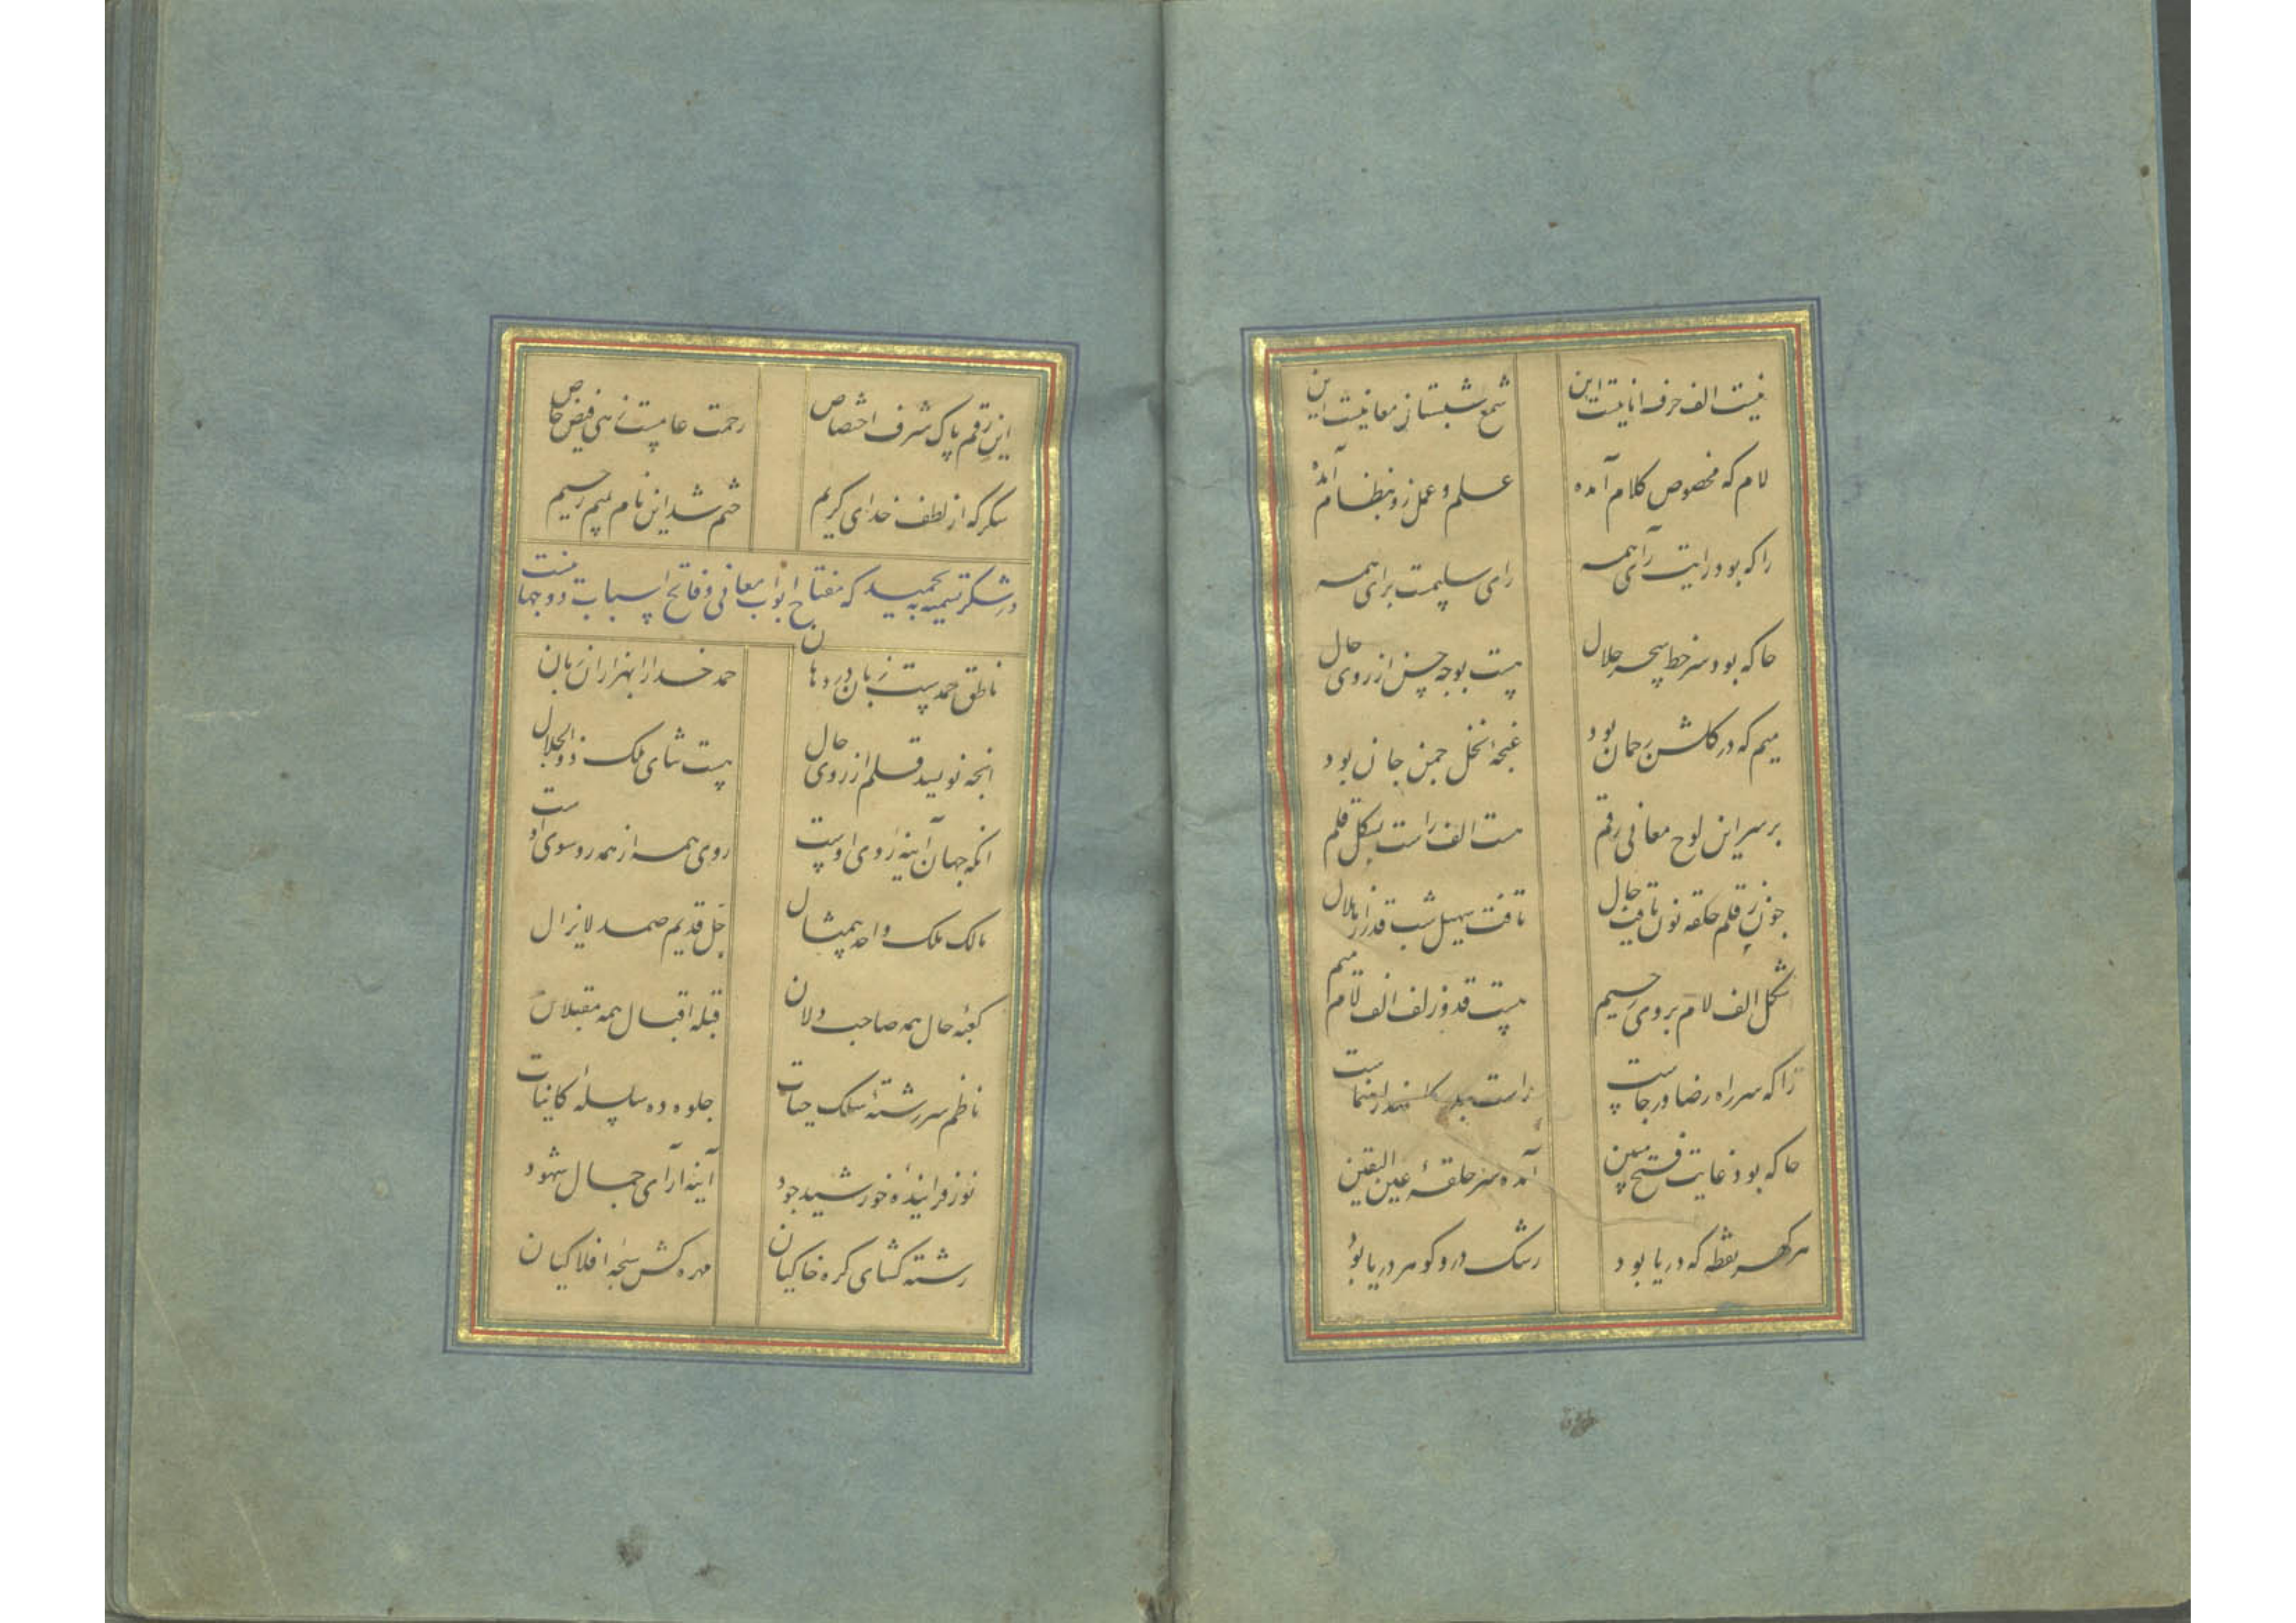 نیست الف حرف انانیت این شمع شبستان معانیست این
لام که مخصوص کلام آمده علم و عمل زو بنظام آمده
را که بود رایت آرای همه رای سلیمت برای همه
حا که بود سر خط سحر حلال هست بوجه حسن از روی حال
میم که در کلشن رحمان بود غنجه نخل جمن جان بود
بر سر این لوح معانی رقم هست الف راست بشکل قلم
جون ز قلم حلقه نون یافت حال تافت سهیل شب قدر از هلال
شکل الف لام بروی رحیم هست قد و زلف الف لام میم
را که سر راه رضا و رجاست راست
حا که بود غایت فتح مبین آمده سر حلقهٔ عین الیقین
هر کهر نقطه که دریا بود رشک در و کوهر دریا بود
این رقم پاک شرف اختصاص رحمت عامیست زهی فیض خاص
شکر که از لطف خدای کریم ختم شد این نام بمیم رحیم
در شکر تسمیه بحمید که مفتاح ابواب معانی و فاتح اسباب دوجهانست
ناطق حمدیست زبان در دها ن حمد خدا را بهزاران زبان
انجه نویسد قلم از روی حال هست ثنای ملک ذوالجلال
انکه جهان آینهٔ روی اوست روی همه از همه رو سوی اوست
مالک ملک واحد بیمثال جل قدیم صمد لایزال
کعبهٔ حال همه صاحب دلان قبله اقبال همه مقبلان
ناظم سر رشتهٔ سلک حیات جلوه ده سلسلهٔ کاینات
نور فزایندهٔ خورشید جود آینه آرای جمال شهود
رشته کشای کره خاکیان مهره کش سبحه افلاکیان